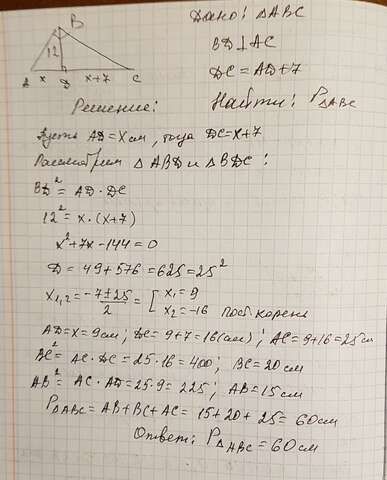 Дано: △ABC
BD⊥AC
DC=AD+7
Найти: P△ABC
B
12
A x D x+7 C
Решение:
Пусть AD=Xсм, тогда DC=x+7
Рассмотрим △ABD и △BDC:
BD²=AD·DC
12²=x·(x+7)
x²+7x-144=0
D=49+576=625=25²
X₁,₂=(-7±25)/2=[x₁=9
x₂=-16 пост. корень
AD=x=9см; DC=9+7=16(см); AC=9+16=25см
BC²=AC·DC=25·16=400; BC=20см
AB²=AC·AD=25·9=225; AB=15см
P△ABC=AB+BC+AC=15+20+25=60см
Ответ: P△ABC=60см